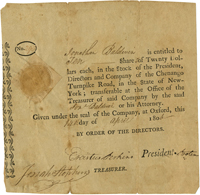 No.
Jonathan Baldwin is entitled to
Two Shares of Twenty Dol-
lars each, in the Stock of the President,
Directors and Company of the Chenango
Turnpike Road, in the State of New-
York; transferable at the Office of the
Treasurer of said Company by the said
Baldwin or his Attorney.
Given under the seal of the Company, at Oxford, this
day of April 180
BY ORDER OF THE DIRECTORS.
President.
TREASURER.